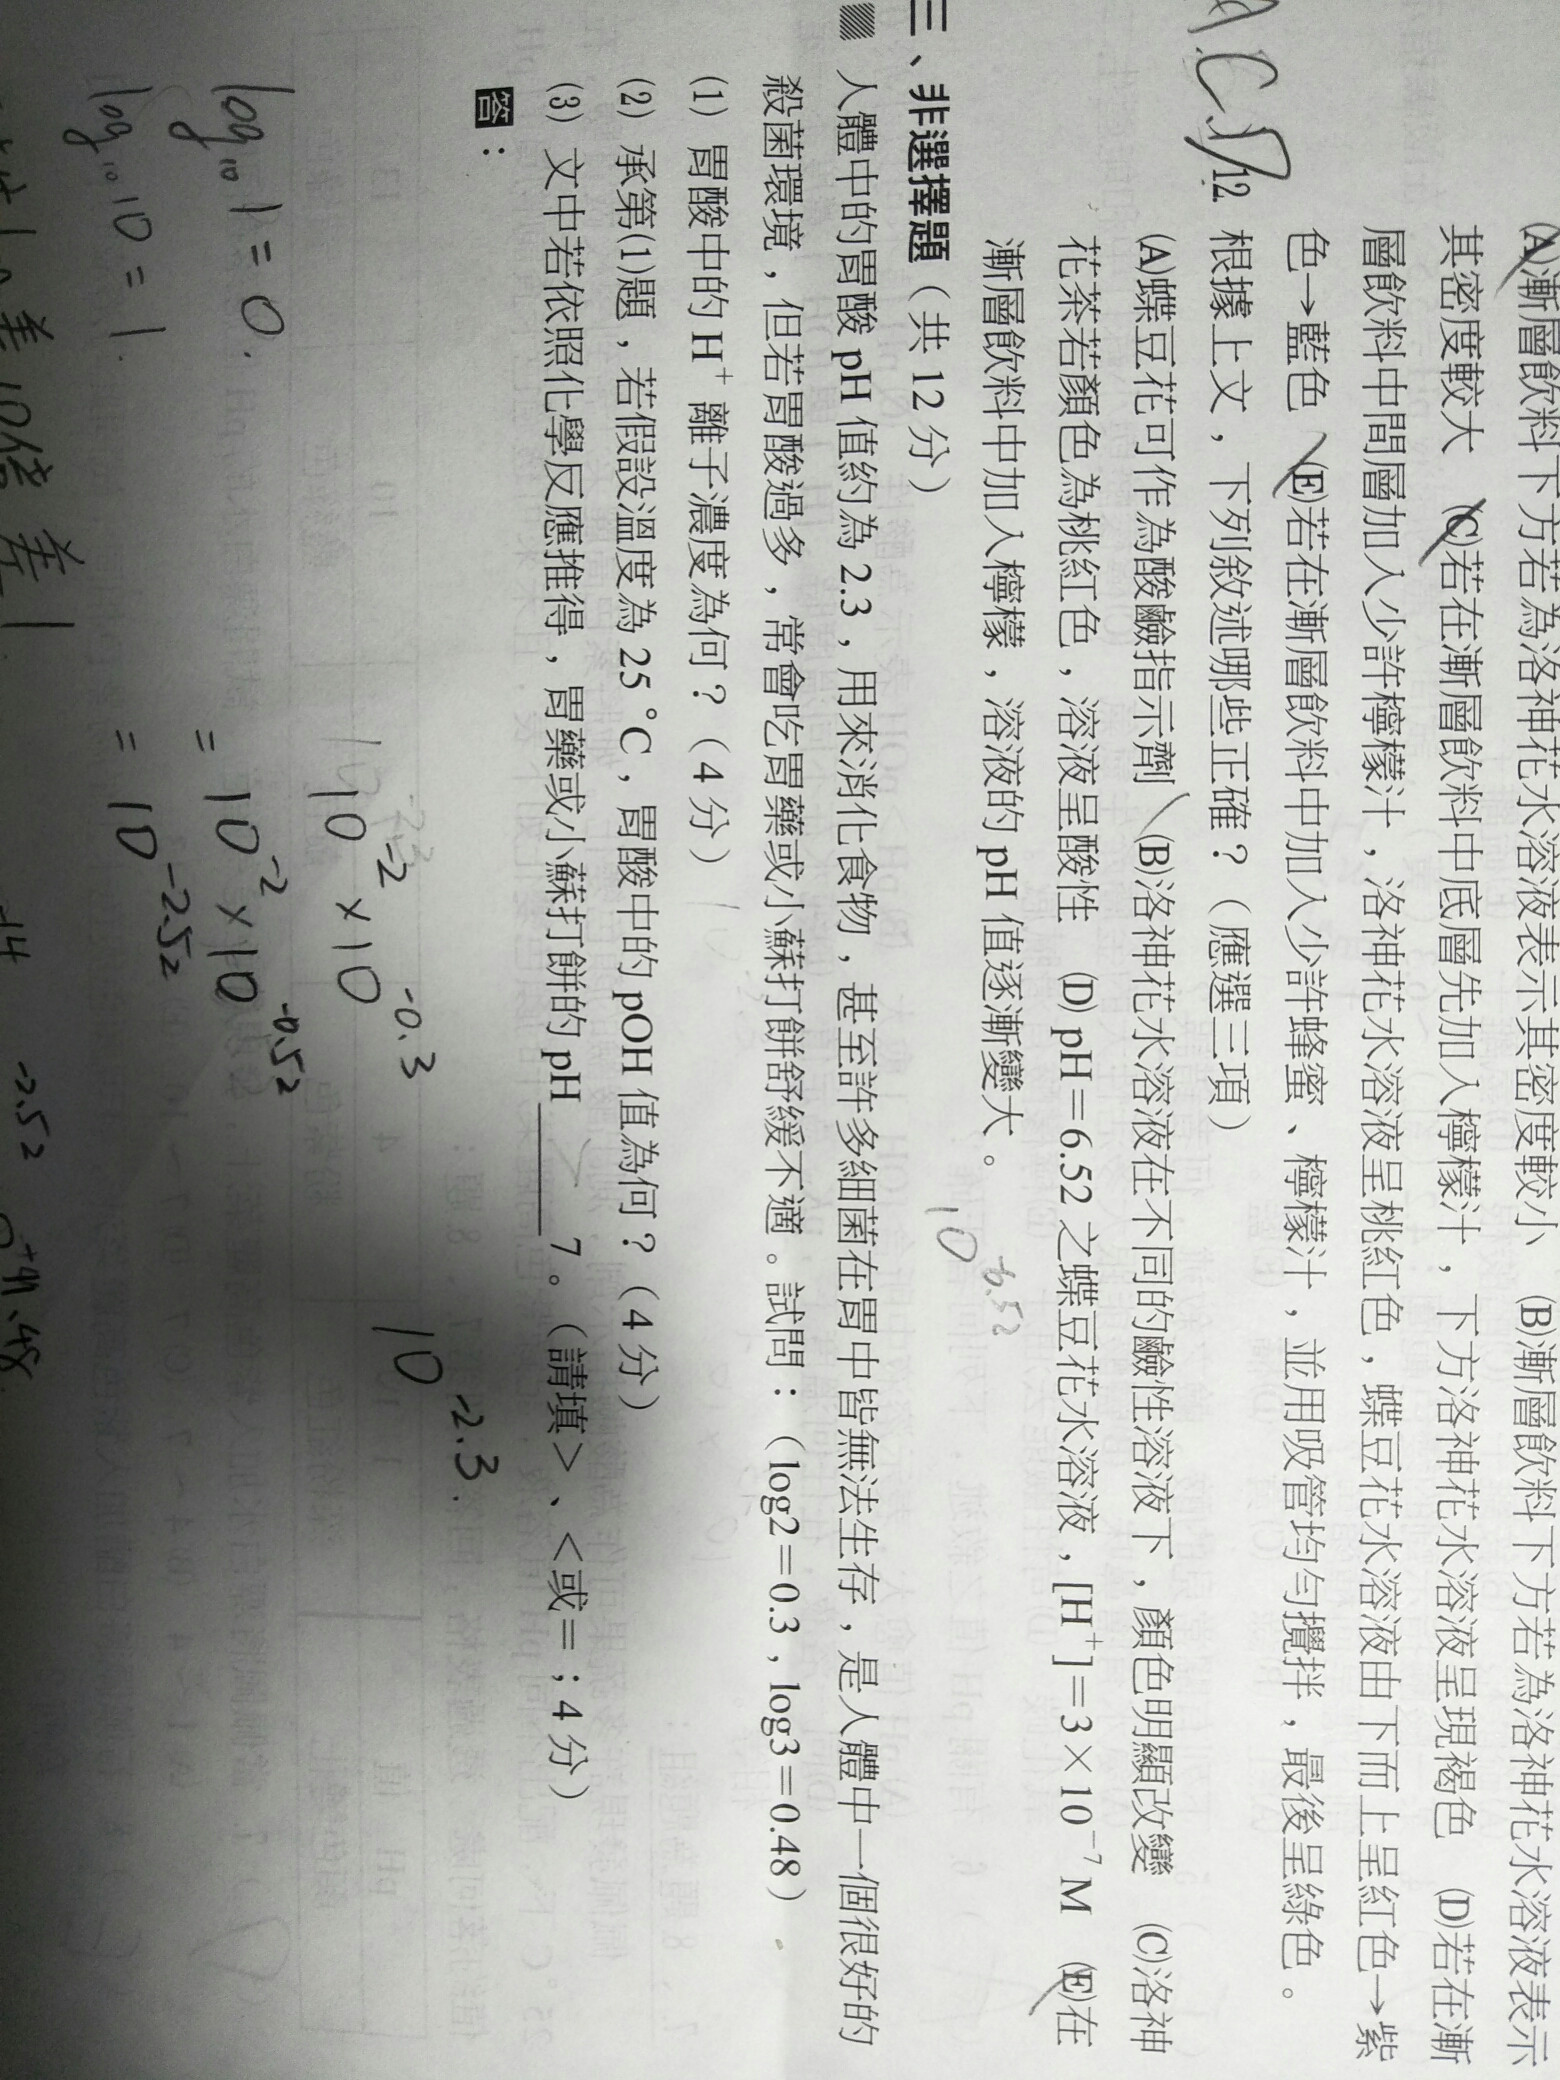 (A)漸層飲料下方若為洛神花水溶液表示其密度較小 (B)漸層飲料下方若為洛神花水溶液表示
其密度較大 (C)若在漸層飲料中底層先加入檸檬汁，下方洛神花水溶液呈現褐色 (D)若在漸
層飲料中間層加入少許檸檬汁，洛神花水溶液呈桃紅色，蝶豆花水溶液由下而上呈紅色→紫
色→藍色 (E)若在漸層飲料中加入少許蜂蜜、檸檬汁，並用吸管均勻攪拌，最後呈綠色。
12. 根據上文，下列敘述哪些正確？（應選三項）
(A)蝶豆花可作為酸鹼指示劑 (B)洛神花水溶液在不同的鹼性溶液下，顏色明顯改變 (C)洛神
花茶若顏色為桃紅色，溶液呈酸性 (D) pH＝6.52 之蝶豆花水溶液，[H⁺]＝3×10⁻⁷ M (E)在
漸層飲料中加入檸檬，溶液的 pH 值逐漸變大。
10^-6.52
三、非選擇題（共 12 分）
人體中的胃酸 pH 值約為 2.3，用來消化食物，甚至許多細菌在胃中皆無法生存，是人體中一個很好的
殺菌環境，但若胃酸過多，常會吃胃藥或小蘇打餅舒緩不適。試問：（log2＝0.3，log3＝0.48）
(1) 胃酸中的 H⁺ 離子濃度為何？（4 分）
(2) 承第(1)題，若假設溫度為 25 °C，胃酸中的 pOH 值為何？（4 分）
(3) 文中若依照化學反應推得，胃藥或小蘇打餅的 pH ______ 7。（請填＞、＜或＝；4 分）
答：
10^-2.3
10^-2 × 10^-0.3
log₁₀ 1 = 0.
= 10^-2 × 10^-0.52
log₁₀ 10 = 1.
= 10^-2.52
差10倍 差1
-14
-2.52